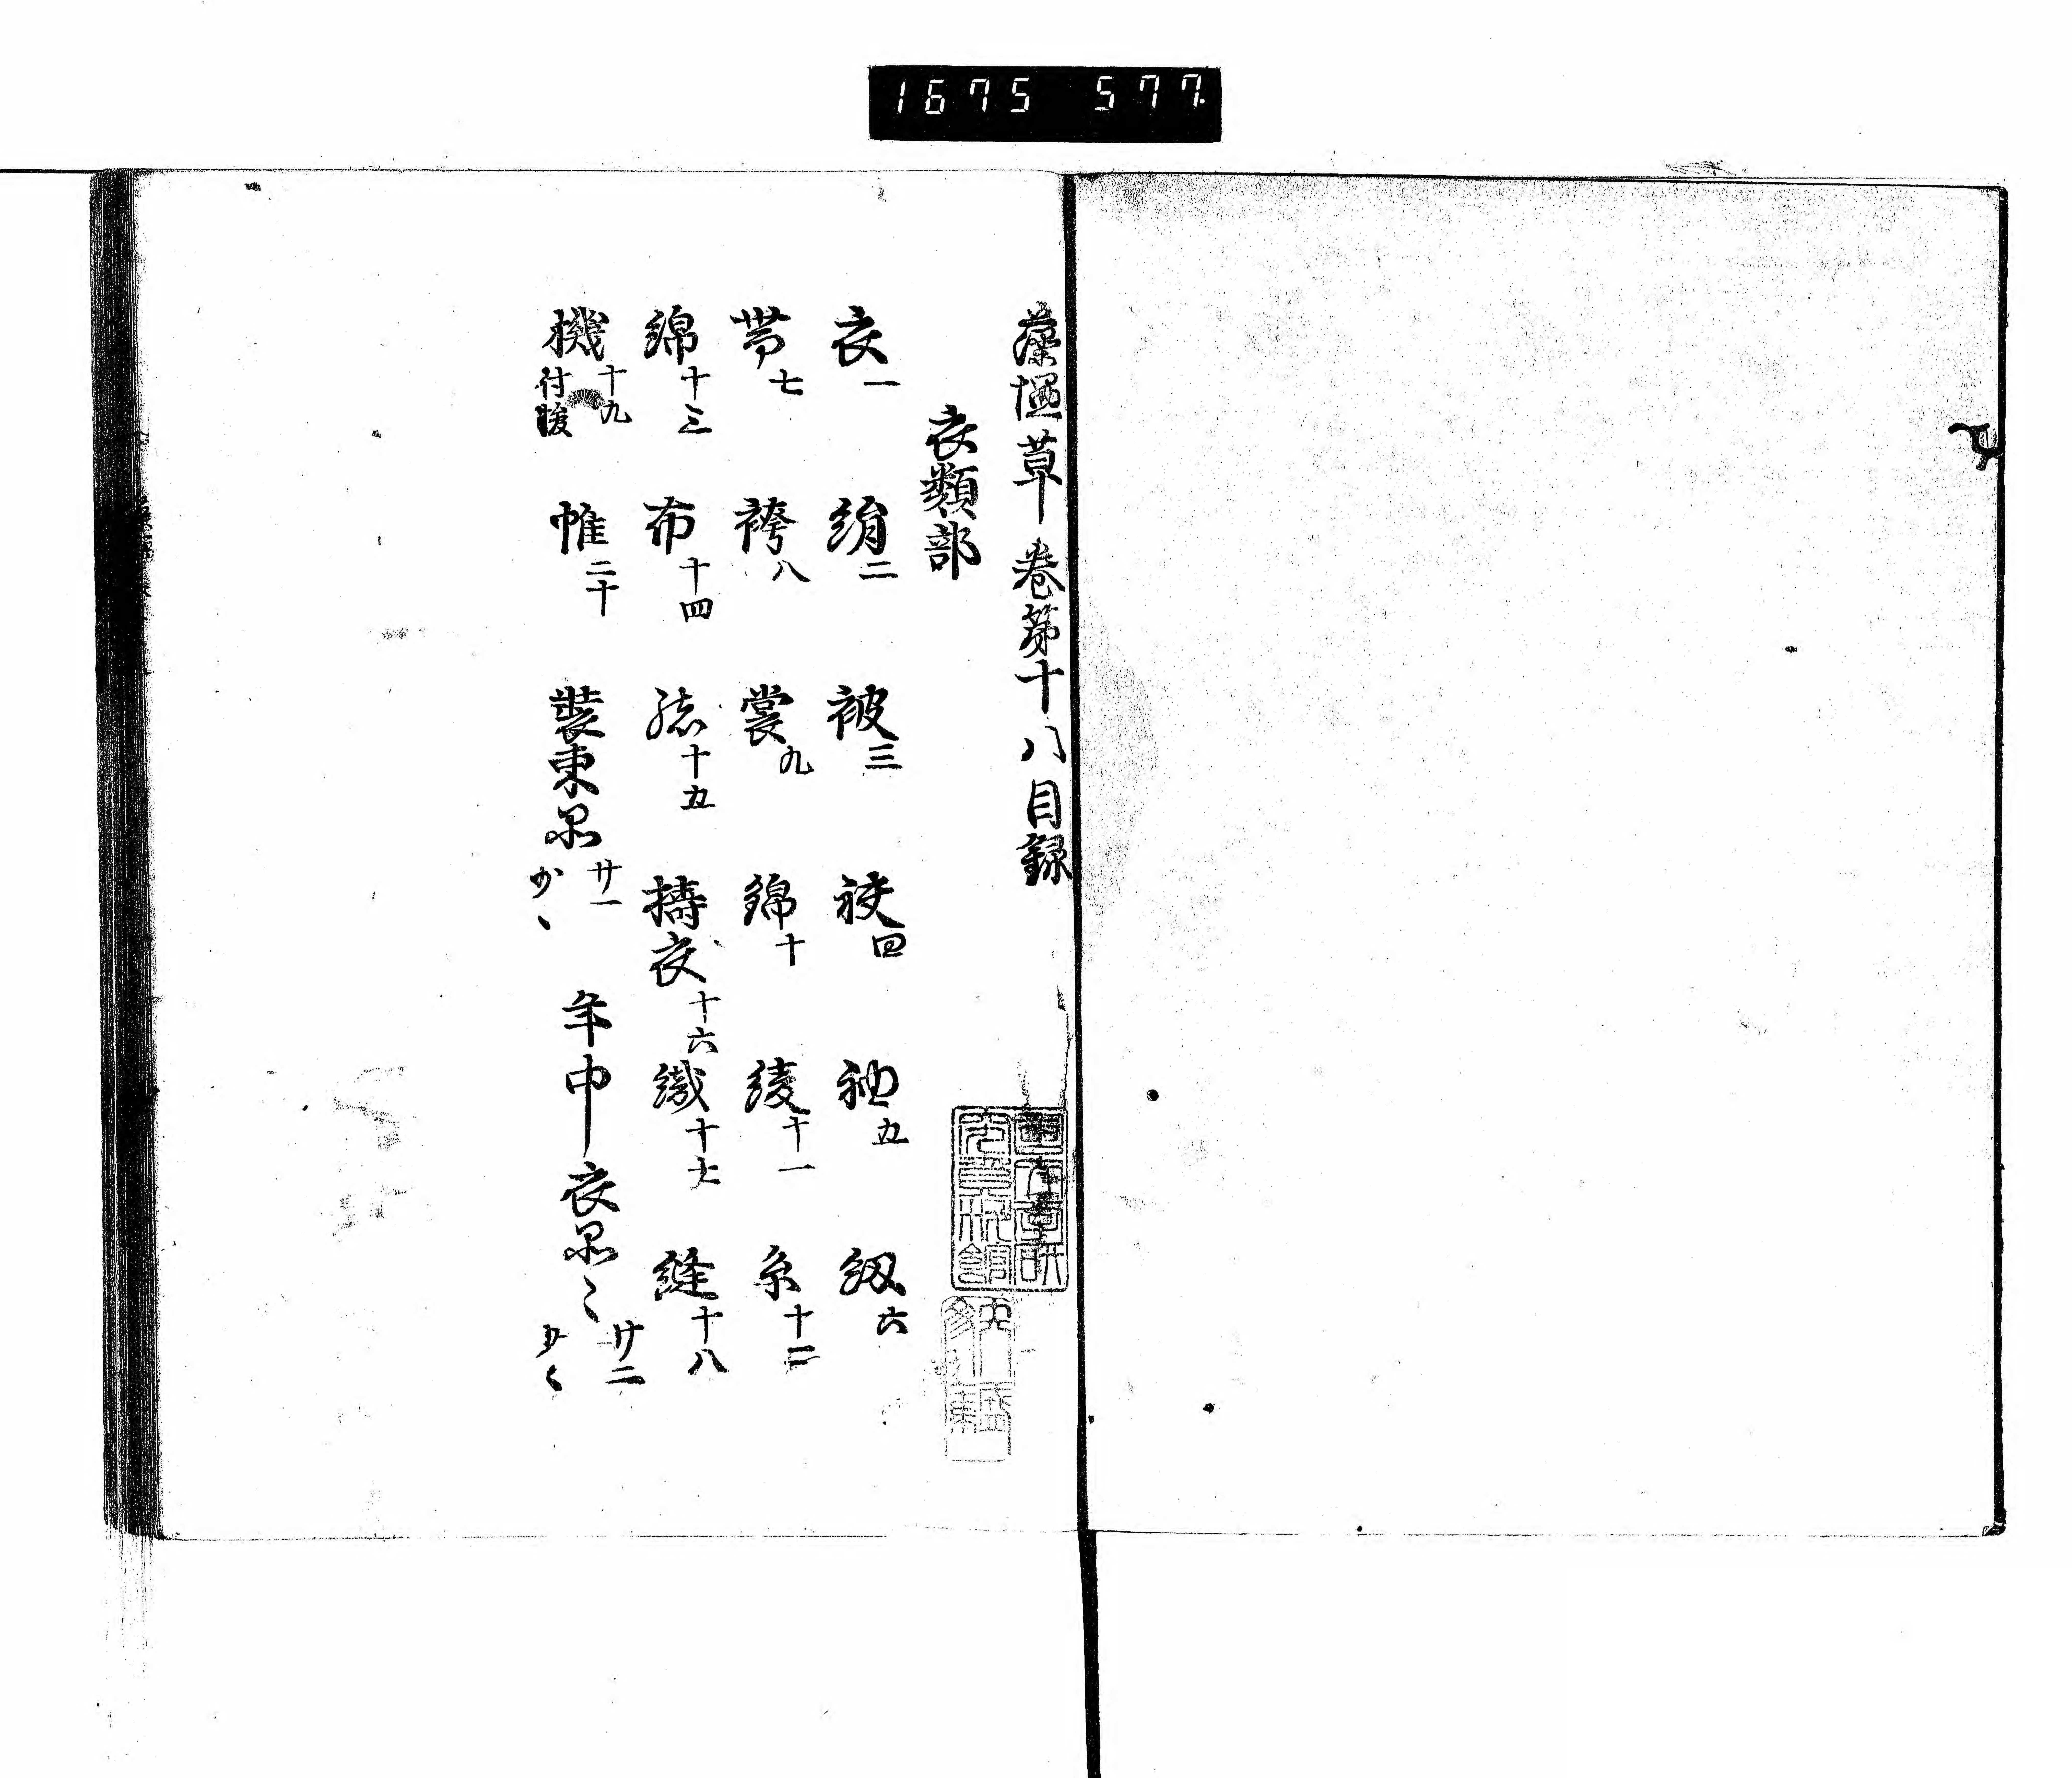 1675 577
藻塩草 巻第十八目録
衣類部
衣一 絹二 被三 袂四 袖五 紐六
帯七 袴八 裳九 錦十 綾十一 糸十二
綿十三 布十四 十五 擣衣十六 織十七 縫十八
機十九 付 帷二十 装束具廿一 少々 年中衣具々廿二 少々